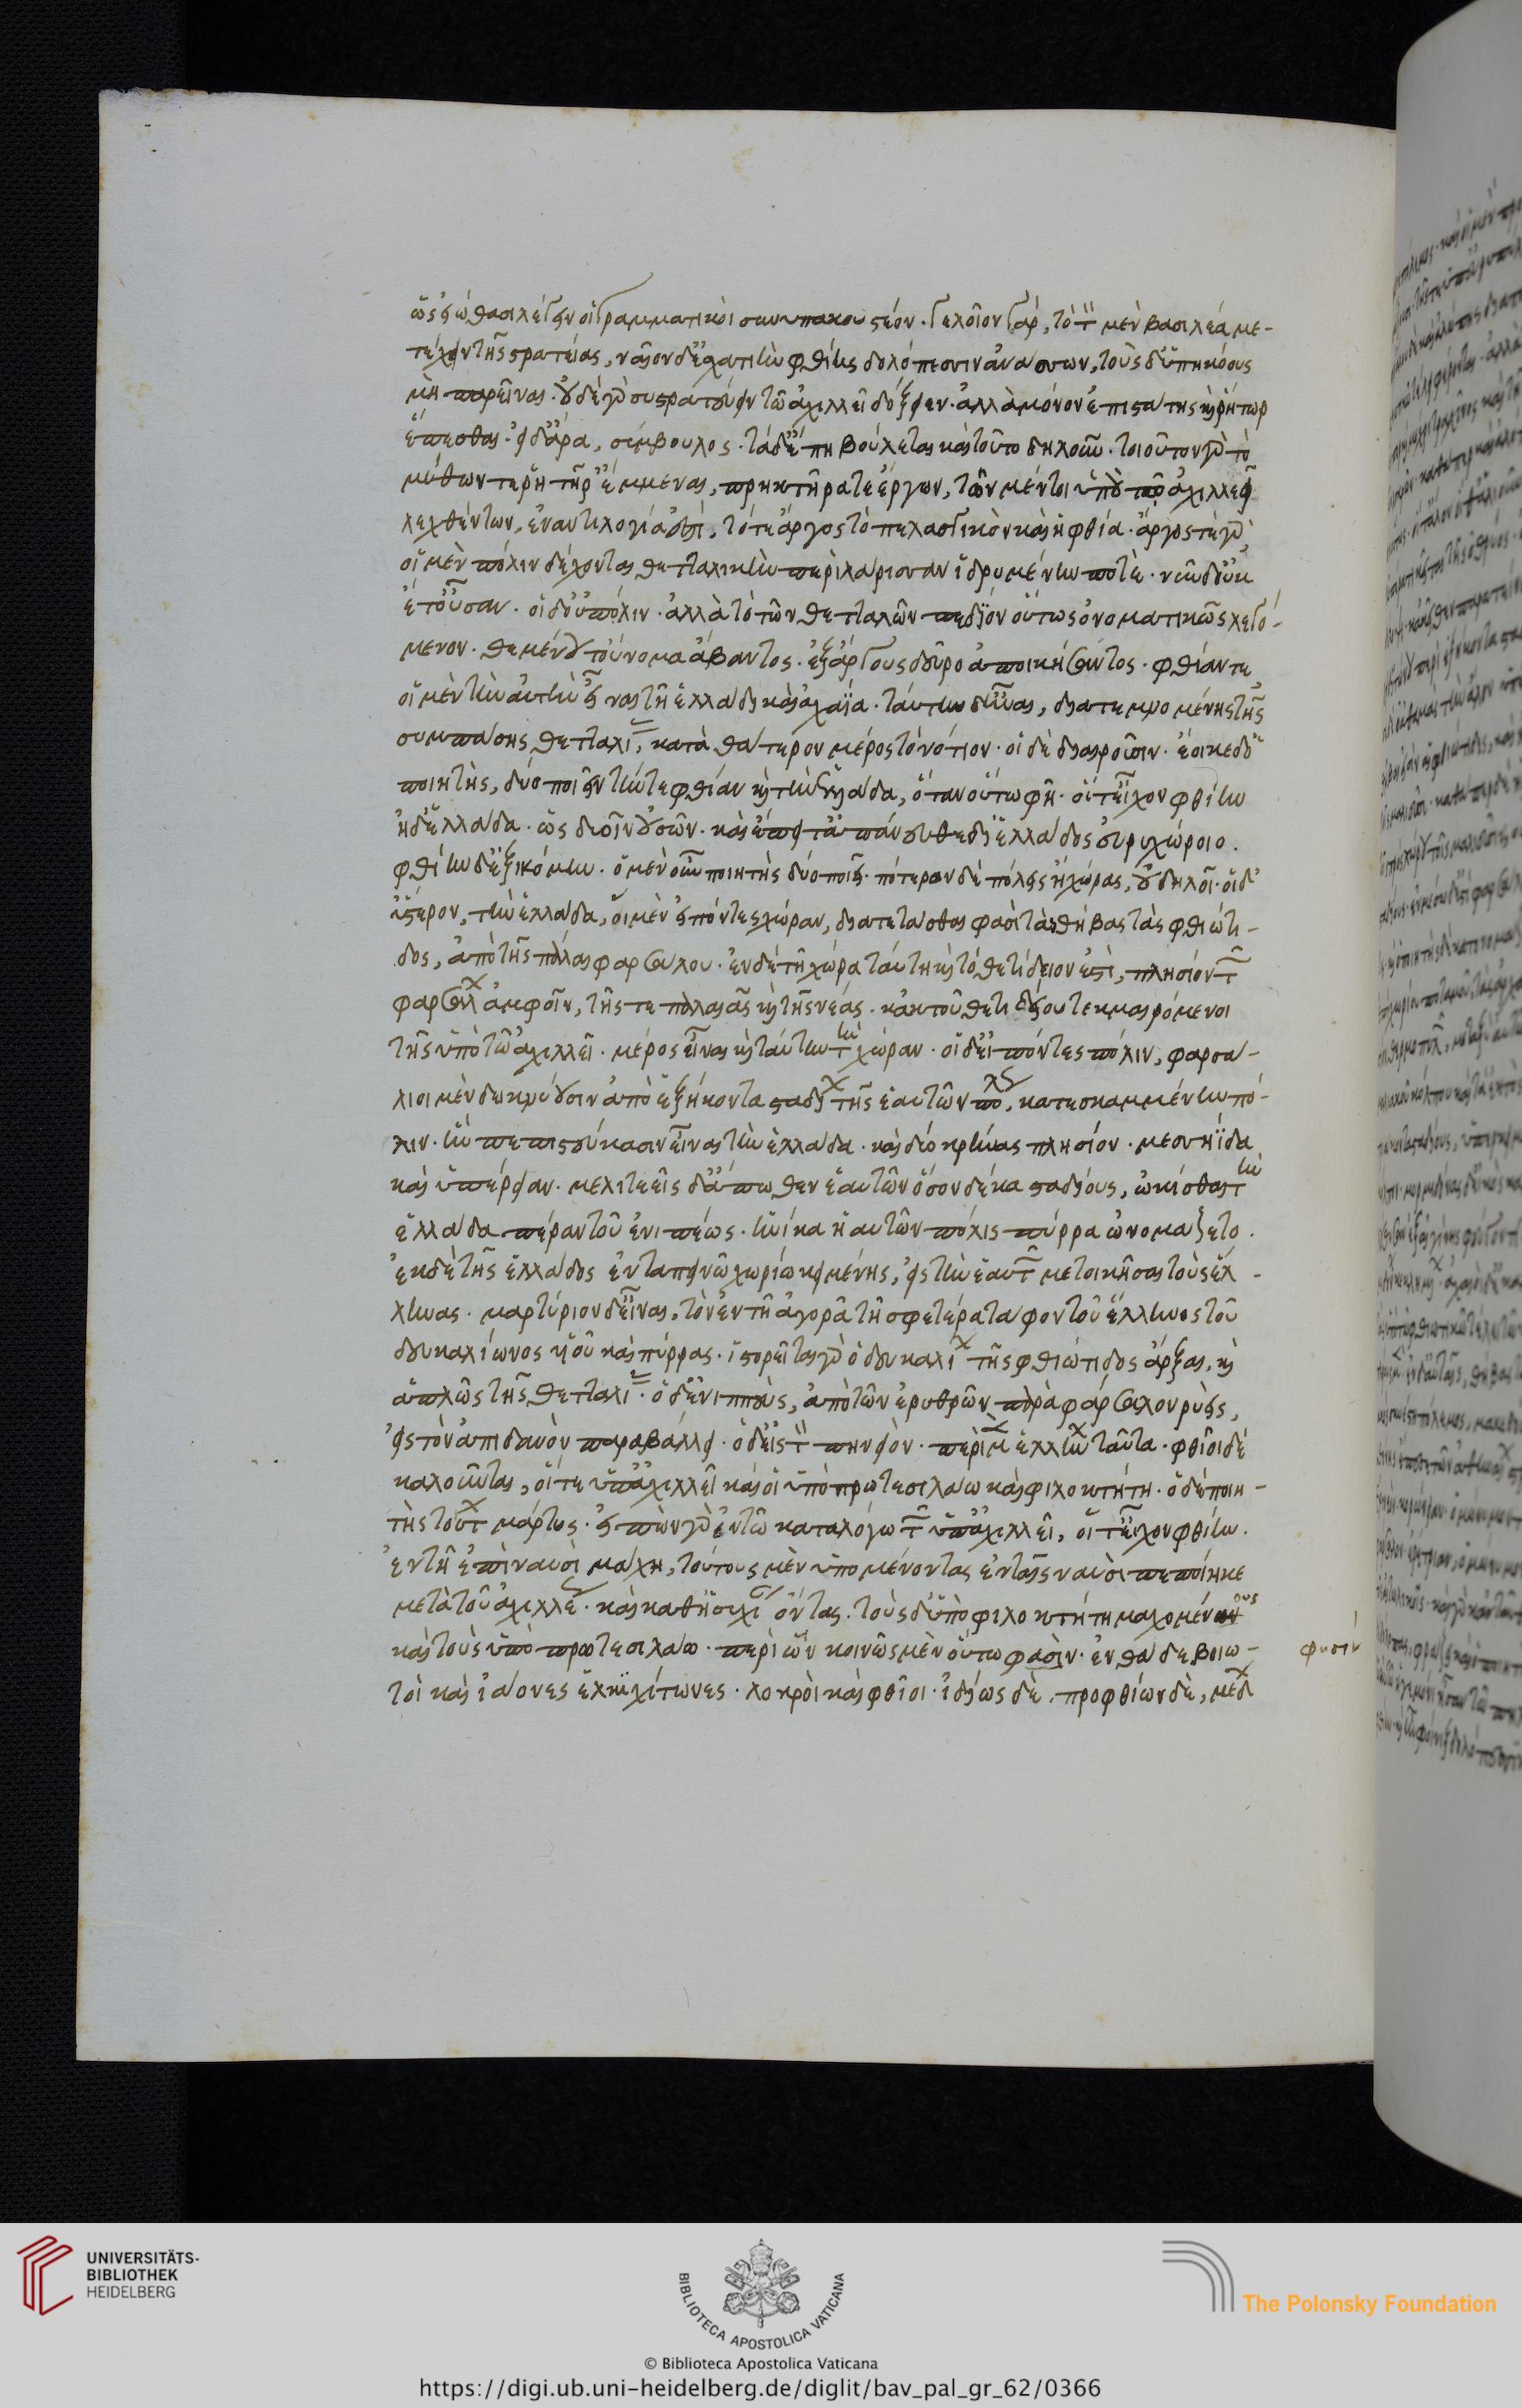 ὡς εἰώθασι λέγειν οἱ γραμματικοὶ συνυπακουστέον. γελοῖον γὰρ, τὸ τὸν μὲν βασιλέα με-
τέχειν τῆς στρατείας, ναῖον δ' ἐσχατιὴν φθίης δολόπεσιν ἀνάσσων, τοὺς δ' ὑπηκόους
μὴ παρεῖναι. οὐδὲ γὰρ συστρατεύειν τῶ ἀχιλλεῖ δόξειεν. ἀλλὰ μόνον ἐπιστάτης καὶ ῥήτωρ
ἕπεσθαι. εἰ δ' ἄρα, σύμβουλος. τὰ δ' ἔπη βούλεται καὶ τοῦτο δηλοῦν. τοιοῦτον γὰρ τὸ
μύθων τε ῥητῆρ' ἔμμεναι, πρηκτῆρά τε ἔργων, τῶν μέντοι ὑπὸ τῶ ἀχιλλεῖ
λεχθέντων, ἐν ἀντιλογία ἐστὶ, τό τε ἄργος τὸ πελασγικὸν καὶ ἡ φθία. ἄργος τὲ γὰρ
οἱ μὲν πόλιν δέχονται θετταλικὴν περὶ λάρισσαν ἱδρυμένην ποτὲ. νῦν δ' οὐκ
ἔτ' οὖσαν. οἱ δ' οὐ πόλιν. ἀλλὰ τὸ τῶν θετταλῶν πεδίον οὕτως ὀνοματικῶς λεγό-
μενον. θεμένου τοὔνομα ἄβαντος. ἐξ ἄργους δεῦρο ἀποικήσαντος. φθίαν τε
οἱ μὲν τὴν αὐτὴν εἶναι τῆ ἑλλάδι καὶ ἀχαΐα. ταύτην δ' εἶναι, διατεμνομένης τῆς
συμπάσης θετταλίας, κατὰ θάτερον μέρος τὸ νότιον. οἱ δὲ διαιροῦσιν. ἔοικε δ' ὁ
ποιητὴς, δύο ποιεῖν τήν τε φθίαν καὶ τὴν ἑλλάδα, ὅταν οὕτω φῆ. οἵ τ' εἶχον φθίην
ἠδ' ἑλλάδα. ὡς δυοῖν οὐσῶν. καὶ ἔπειτ' ἀπάνευθε δι' ἑλλάδος εὐρυχώροιο.
φθίην δ' ἐξικόμην. ὁ μὲν οὖν ποιητὴς δύο ποιεῖ. πότερον δὲ πόλεις ἢ χώρας, οὐ δηλοῖ. οἱ δ'
ὕστερον, τὴν ἑλλάδα, οἱ μὲν εἰπόντες χώραν, διατετάσθαι φασὶ τὰς θήβας τὰς φθιώτι-
δος, ἀπὸ τῆς παλαιᾶς φαρσάλου. ἐν δὲ τῆ χώρα ταύτη καὶ τὸ θετίδειον ἐστὶ, πλησίον τῶν
φαρσάλων ἀμφοῖν, τῆς τε παλαιᾶς καὶ τῆς νέας. κἀκ τοῦ θετιδείου τεκμαιρόμενοι
τῆς ὑπὸ τῶ ἀχιλλεῖ. μέρος εἶναι καὶ ταύτην τὴν χώραν. οἱ δ' εἰπόντες πόλιν, φαρσά-
λιοι μὲν δεικνύουσιν ἀπὸ ἑξήκοντα σταδίων τῆς ἑαυτῶν πόλεως, κατεσκαμμένην πό-
λιν. ἣν πεπιστεύκασιν εἶναι τὴν ἑλλάδα. καὶ δύο κρήνας πλησίον. μεσσηΐδα
καὶ ὑπέρειαν. μελιτεεῖς δ' ἄπωθεν ἑαυτῶν ὅσον δέκα σταδίους, ὠκίσθαι τὴν
ἑλλάδα πέραν τοῦ ἐνιπέως. ἡνίκα ἡ αὐτῶν πόλις πύρρα ὠνομάζετο.
ἐκ δὲ τῆς ἑλλάδος ἐν ταπεινῶ χωρίω κειμένης, εἰς τὴν ἑαυτῶν μετοικῆσαι τοὺς ἕλ-
ληνας. μαρτύριον δ' εἶναι, τὸν ἐν τῆ ἀγορᾶ τῆ σφετέρα τάφον τοῦ ἕλληνος τοῦ
δευκαλίωνος υἱοῦ καὶ πύρρας. ἱστορεῖται γὰρ ὁ δευκαλίων τῆς φθιώτιδος ἄρξαι, καὶ
ἁπλῶς τῆς θετταλίας. ὁ δ' ἐνιππεὺς, ἀπὸ τῶν ἐρυθρῶν παρὰ φάρσαλον ῥυεὶς,
εἰς τὸν ἀπιδανὸν παραβάλλει. ὁ δ' εἰς τὸν πηνειὸν. περὶ μὲν ἑλλήνων ταῦτα. φθῖοι δὲ
καλοῦνται, οἵ τε ὑπ' ἀχιλλεῖ καὶ οἱ ὑπὸ πρωτεσιλάω καὶ φιλοκτήτη. ὁ δὲ ποιη-
τὴς τούτων μάρτυς. εἰπὼν γὰρ ἐν τῶ καταλόγω τῶν ὑπ' ἀχιλλεῖ, οἵ τ' εἶχον φθίην.
ἐν τῆ ἐπὶ ναυσὶ μάχη, τούτους μὲν ὑπομένοντας ἐν ταῖς ναυσὶ πεποίηκε
μετὰ τοῦ ἀχιλλέως. καὶ καθ' ἡσυχίαν ὄντας. τοὺς δ' ὑπὸ φιλοκτήτη μαχομένους
καὶ τοὺς ὑπὸ πρωτεσιλάω. περὶ ὧν κοινῶς μὲν οὕτω φασὶν. ἐνθάδε βοιω-
φησίν
τοὶ καὶ ἰάονες ἑλκεχίτωνες. λοκροὶ καὶ φθῖοι. ἰδίως δὲ. πρὸ φθίων δὲ, μέδ
UNIVERSITÄTS-
BIBLIOTHEK
HEIDELBERG
BIBLIOTECA APOSTOLICA VATICANA
The Polonsky Foundation
© Biblioteca Apostolica Vaticana
https://digi.ub.uni-heidelberg.de/diglit/bav_pal_gr_62/0366